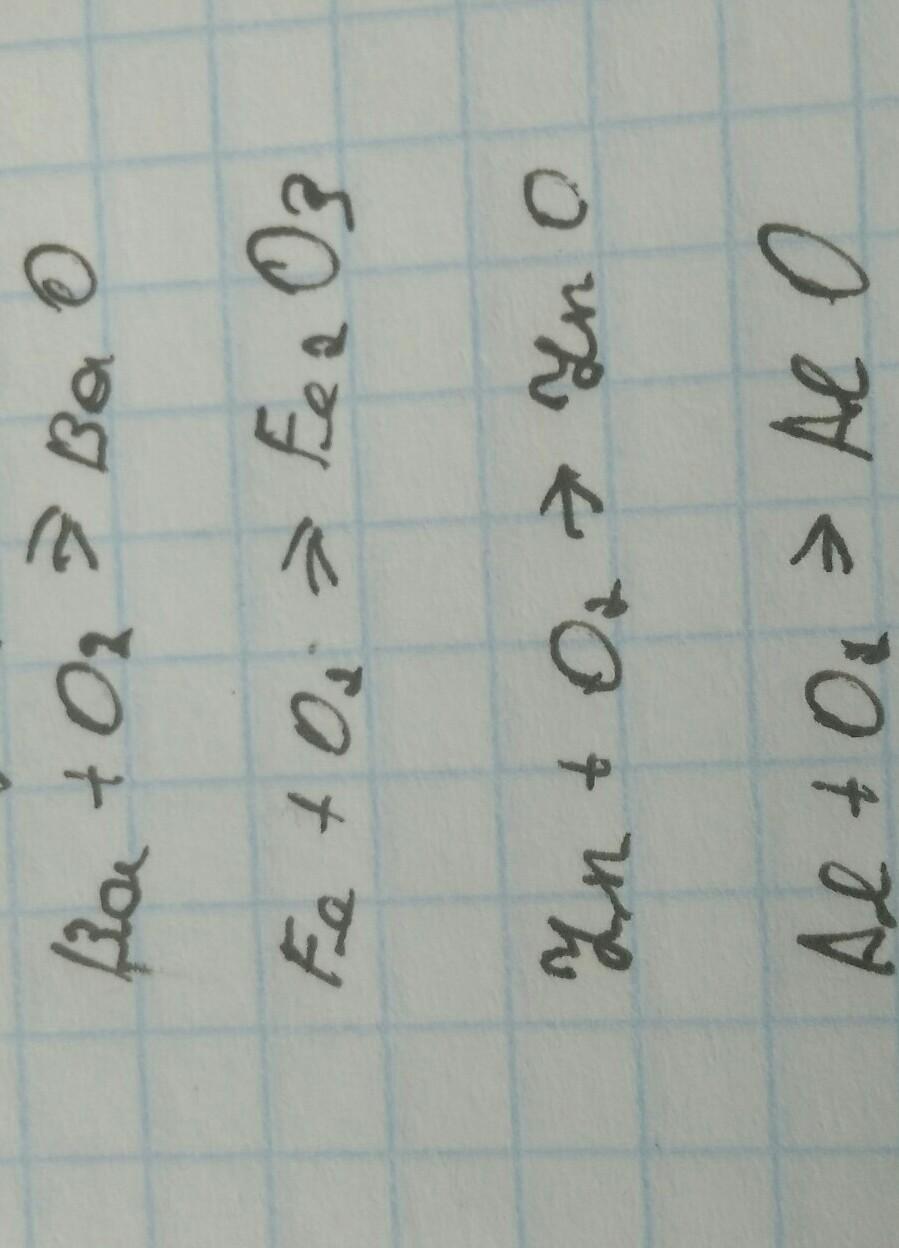 Ba + O₂ → Ba O
Fe + O₂ → Fe₂ O₃
Zn + O₂ → Zn O
Al + O₂ → Al O